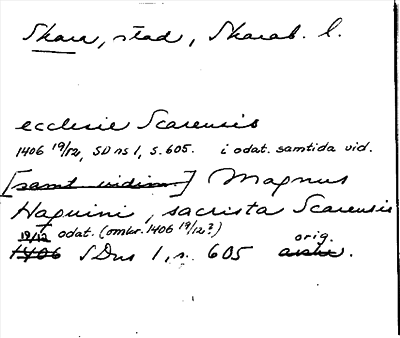 Skara, stad, Skarab. l.
ecclesie Scarensis
1406 19/12, SD ns 1, s. 605. i odat. samtida vid.
[samt vidim.] Magnus
Haquini, sacrista Scarensis
19/12 odat. (omkr. 1406 19/12?) orig.
1406 SDns 1, s. 605 avskr.